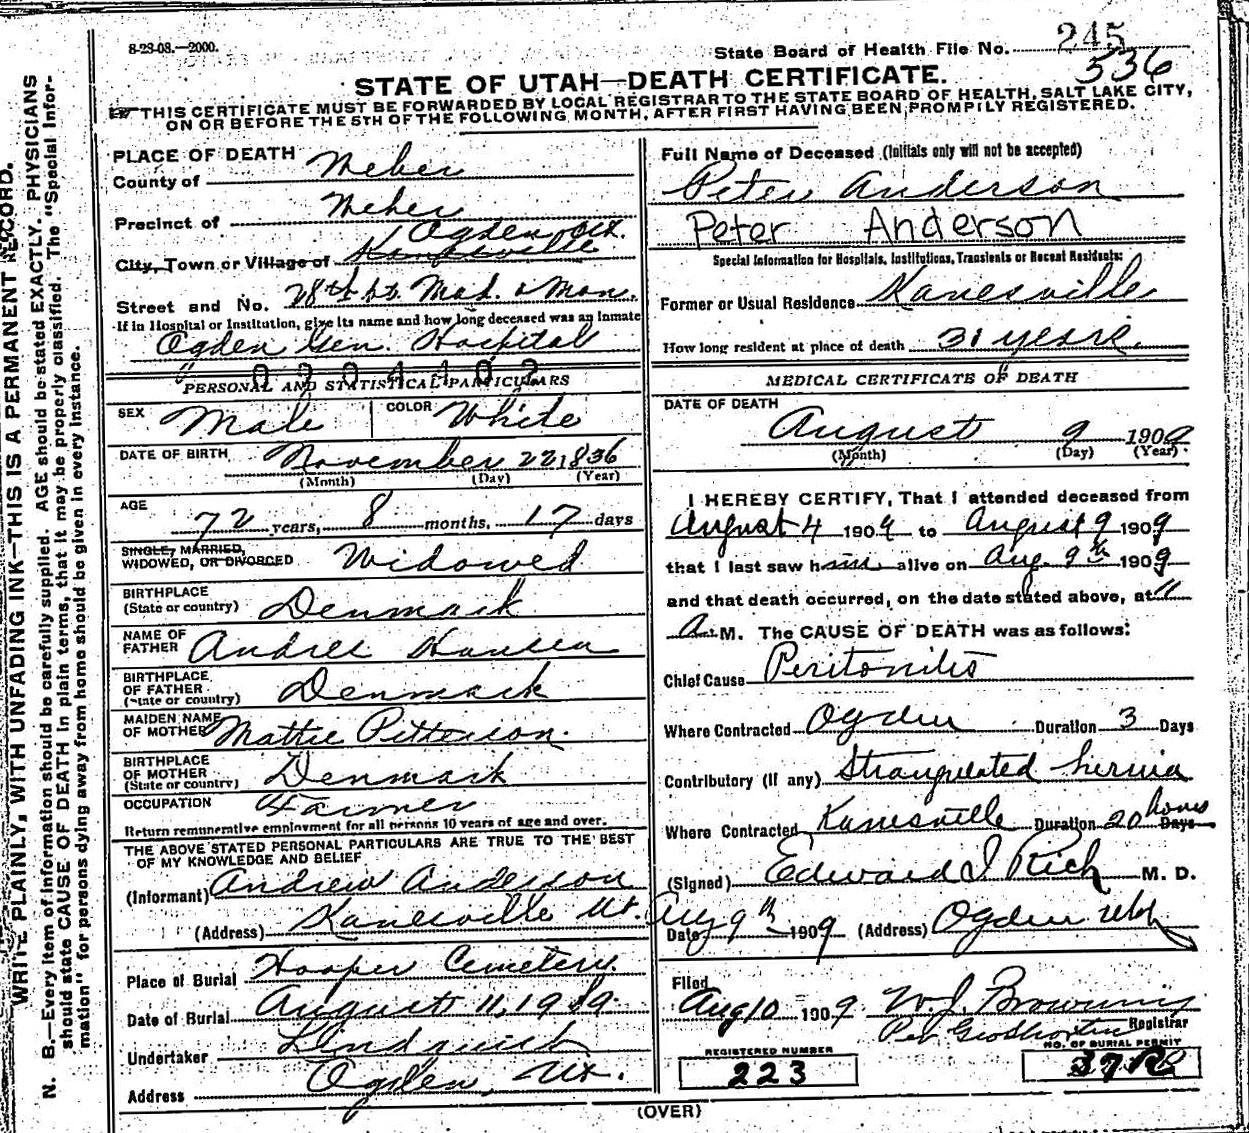 8-23-08.—2000.
State Board of Health File No. 245
536
STATE OF UTAH—DEATH CERTIFICATE.
☞THIS CERTIFICATE MUST BE FORWARDED BY LOCAL REGISTRAR TO THE STATE BOARD OF HEALTH, SALT LAKE CITY,
ON OR BEFORE THE 5TH OF THE FOLLOWING MONTH, AFTER FIRST HAVING BEEN PROMPTLY REGISTERED.
WRITE PLAINLY, WITH UNFADING INK—THIS IS A PERMANENT RECORD.
N. B.—Every item of information should be carefully supplied. AGE should be stated EXACTLY. PHYSICIANS
should state CAUSE OF DEATH in plain terms, that it may be properly classified. The "Special Infor-
mation" for persons dying away from home should be given in every instance.
PLACE OF DEATH
County of Weber
Precinct of Weber
Ogden
City, Town or Village of Kanesville
Street and No. 28th bt. Mad. & Mon.
If in Hospital or Institution, give its name and how long deceased was an inmate
Ogden Gen. Hospital
PERSONAL AND STATISTICAL PARTICULARS
SEX Male COLOR White
DATE OF BIRTH November 22 1836
(Month) (Day) (Year)
AGE 72 years, 8 months, 17 days
SINGLE, MARRIED,
WIDOWED, OR DIVORCED Widowed
BIRTHPLACE
(State or country) Denmark
NAME OF
FATHER Andree Hansen
BIRTHPLACE
OF FATHER
(State or country) Denmark
MAIDEN NAME
OF MOTHER Mattie Pitterson.
BIRTHPLACE
OF MOTHER
(State or country) Denmark
OCCUPATION Farmer
Return remunerative employment for all persons 10 years of age and over.
THE ABOVE STATED PERSONAL PARTICULARS ARE TRUE TO THE BEST
OF MY KNOWLEDGE AND BELIEF
(Informant) Andrew Anderson
(Address) Kanesville Ut.
Place of Burial Hooper Cemetery.
Date of Burial August 11, 1909
Undertaker Lindquist
Address Ogden, Ut.
Full Name of Deceased (Initials only will not be accepted)
Peter Anderson
Peter Anderson
Special Information for Hospitals, Institutions, Transients or Recent Residents:
Former or Usual Residence Kanesville
How long resident at place of death 31 years.
MEDICAL CERTIFICATE OF DEATH
DATE OF DEATH
August 9 1909
(Month) (Day) (Year)
I HEREBY CERTIFY, That I attended deceased from
August 4 1909 to August 9 1909
that I last saw him alive on Aug. 9th 1909
and that death occurred, on the date stated above, at 11
A. M. The CAUSE OF DEATH was as follows:
Chief Cause Peritonitis
Where Contracted Ogden Duration 3 Days
Contributory (if any) Strangulated hernia
Where Contracted Kanesville Duration 20 hours Days
(Signed) Edward I Rich M. D.
Date Aug 9th 1909 (Address) Ogden Utah
Filed
Aug 10 1909. W. J. Browning
Registrar
REGISTERED NUMBER
223
NO. OF BURIAL PERMIT
(OVER)